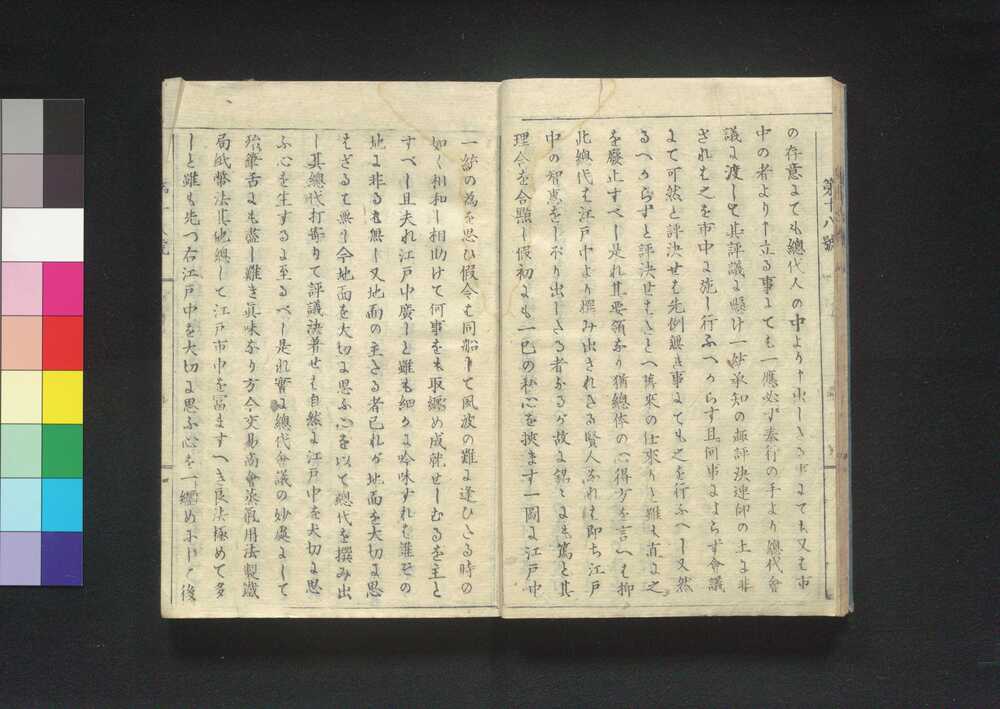 第十八號
の存意にても總代人の中より申出しさる事にても又も市
中の者より申立る事にても一應必ず奉行の手より總代會
議に渡して其評議に懸け一統承知の趣評決連印の上に非
されむ之を市中に施し行ふへからす且何事によらず會議
よて可然と評決せむ先例無き事にても之を行ふへし又然
るへからずと評決せむさとへ従來の仕來りと雖も直に之
を廢止すべし是れ其要領なり猶總体の心得方を言へも抑
此總代も江戸中より撰み出されさる賢人なれも即ち江戸
中の智恵をしぼり出しさる者なるが故に銘々にも篤と其
理合を合顯し假初にも一己の私心を挾ます一圖に江戸中
一統の為を思ひ假令も同船して風波の難に逢ひさる時の
如く相和し相助けて何事をも取纒め成就せしむるを主と
すべし且夫れ江戸中廣しと雖も細かに吟味すれも誰その
地に非るも無し又地面の主さる者己れが地面を大切に思
もざるて無し今地面を大切に思ふ心を以て總代を撰み出
し其總代打寄りて評議決着せも自然に江戸中を大切に思
ふ心を生するに至るべし是れ實に總代會議の妙處よして
殆筆舌にも盡し難き眞味なり方今交易商會蒸氣用法製鐵
局紙幣法其他總して江戸市中を冨ますへき良法極めて多
しと雖も先つ右江戸中を大切に思ふ心を一纒めに 後